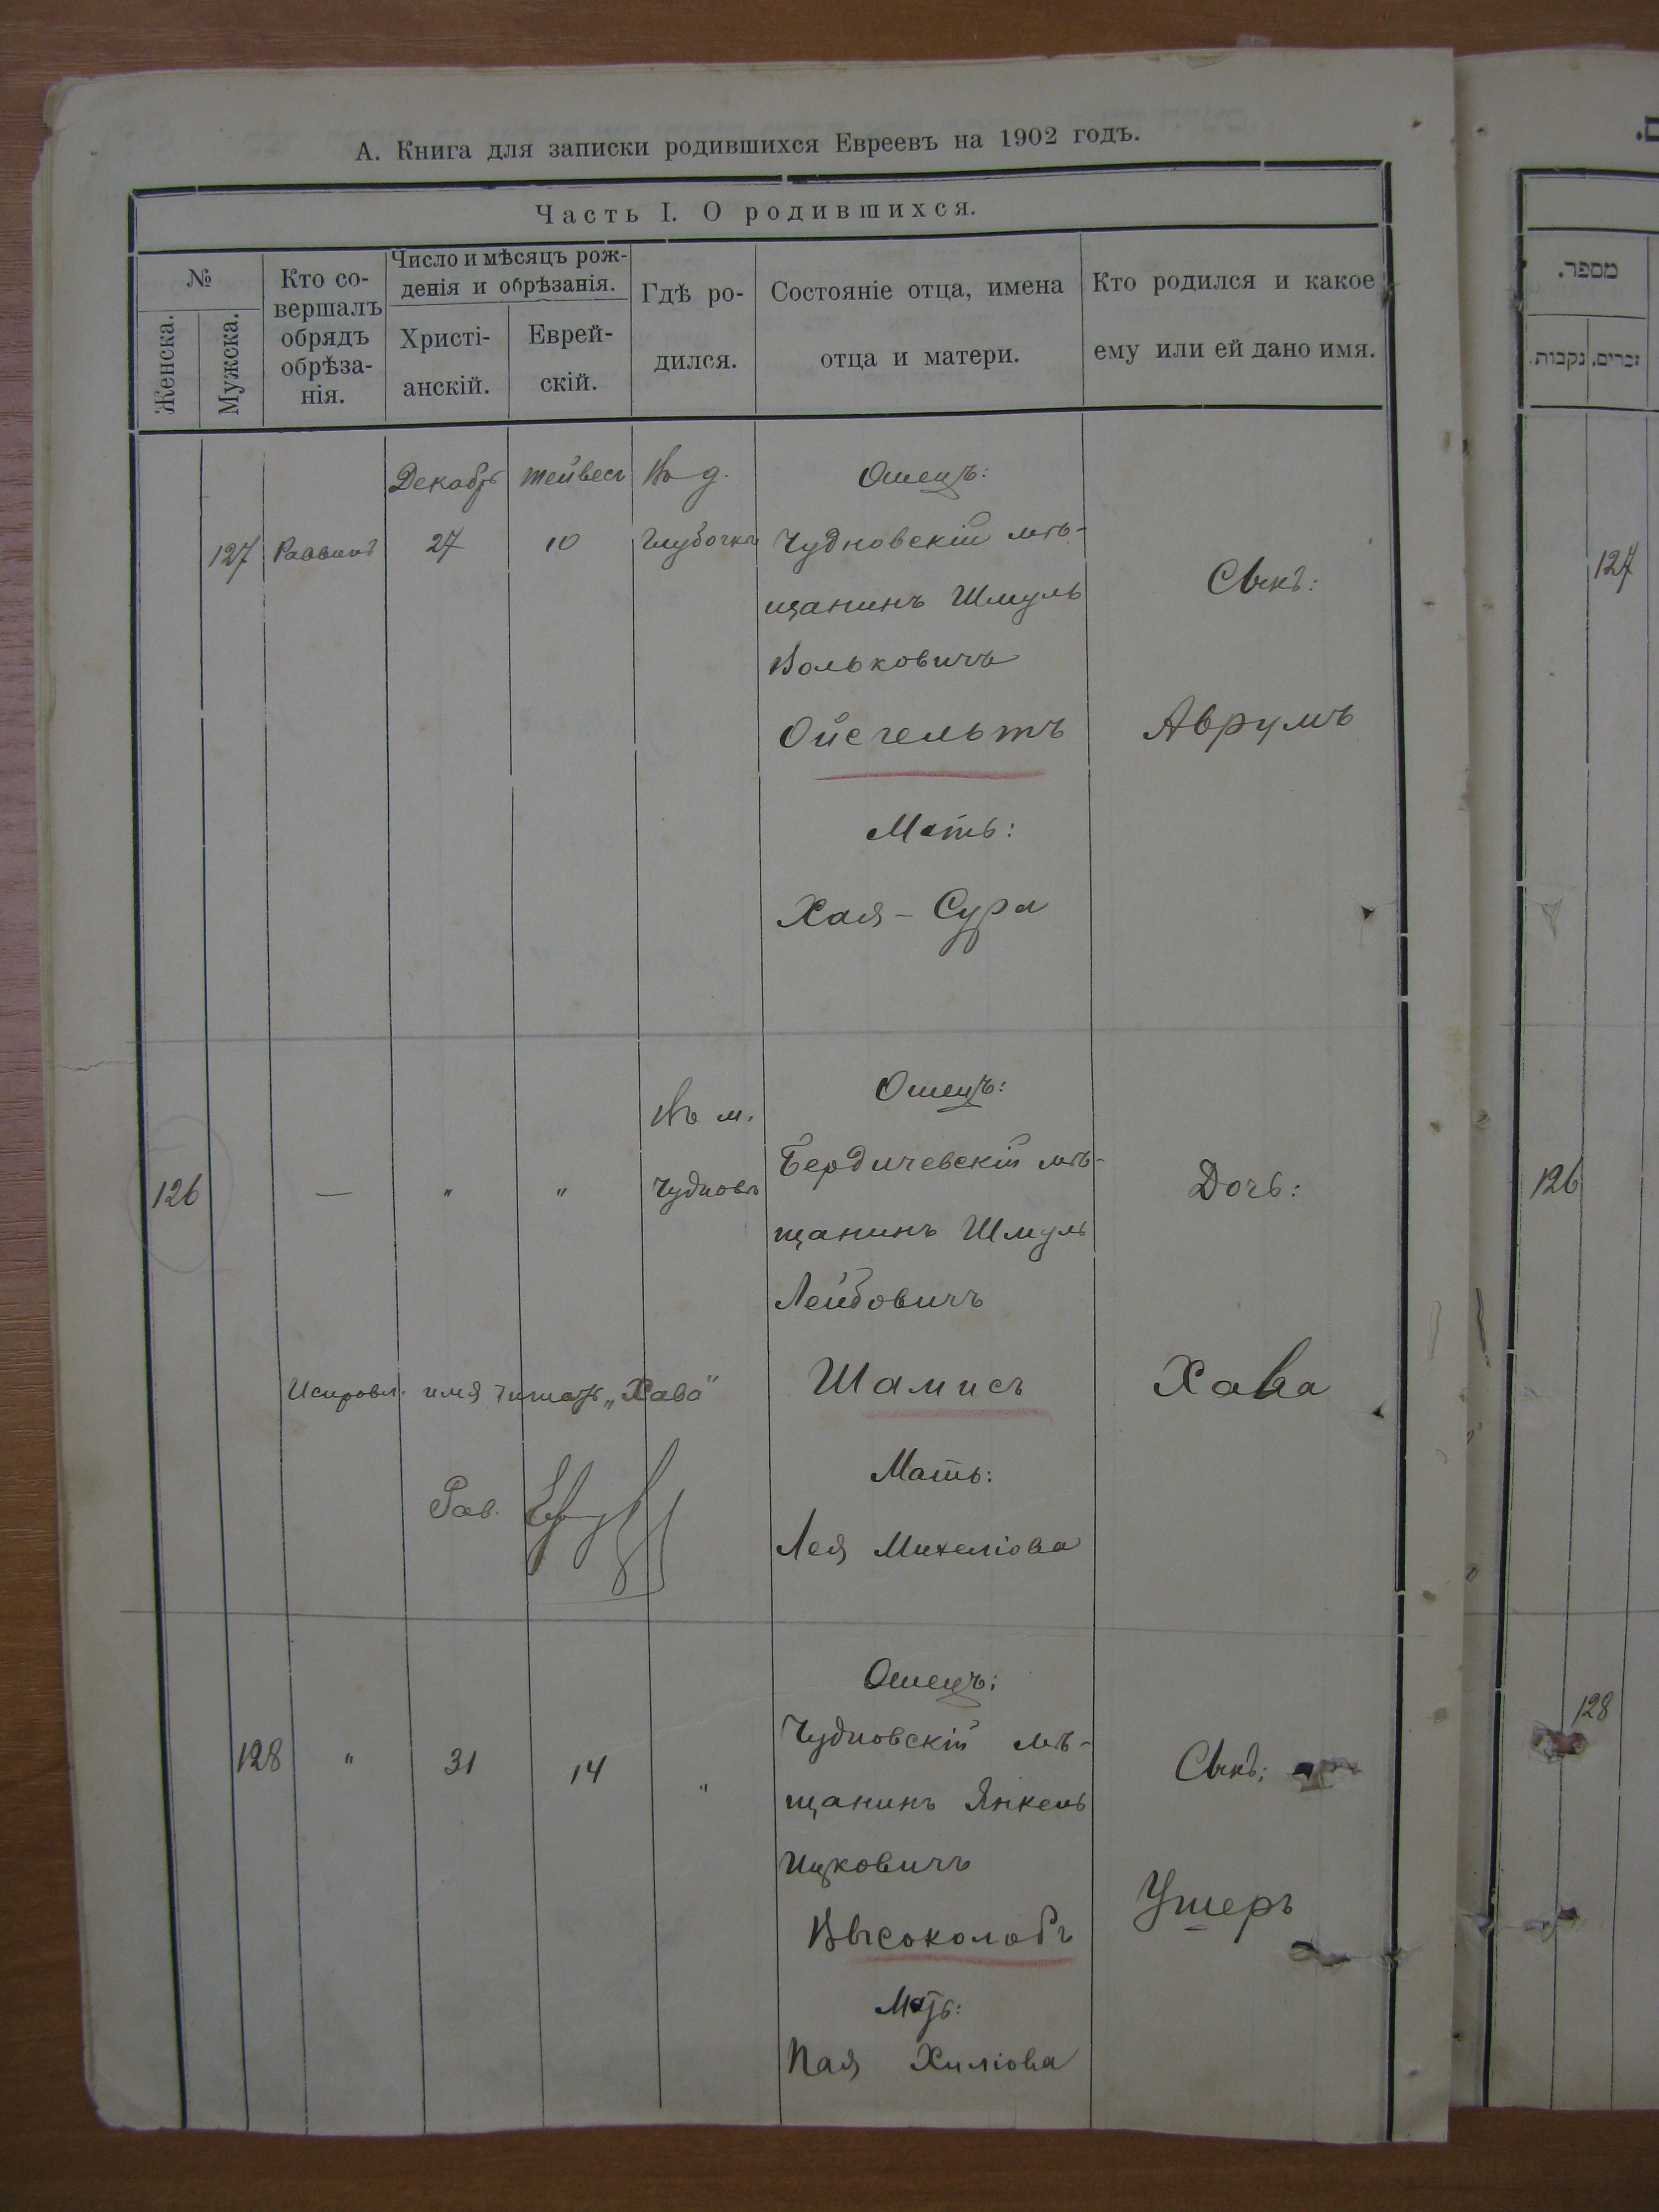 А. Книга для записки родившихся Евреевъ на 1902 годъ.
Часть I. О родившихся.
№
Женска.
Мужска.
Кто со-
вершалъ
обрядъ
обрѣза-
нія.
Число и мѣсяцъ рож-
денія и обрѣзанія.
Христі-
анскій.
Еврей-
скій.
Гдѣ ро-
дился.
Состояніе отца, имена
отца и матери.
Кто родился и какое
ему или ей дано имя.
127
Раввинъ
Декабрь
27
тейвесъ
10
Въ д.
Глубочкѣ
Отецъ:
Чудновскій мѣ-
щанинъ Шмуль
Вольковичъ
Ойсгельтъ
Мать:
Хая-Сура
Сынъ:
Аврумъ
126
—
"
"
Въ м.
Чудновѣ
Отецъ:
Бердичевскій мѣ-
щанинъ Шмуль
Лейбовичъ
Шамисъ
Мать:
Лея Михеліова
Дочь:
Хава
Исправл. имя читать „Хава"
Рав.
128
"
31
14
"
Отецъ:
Чудновскій мѣ-
щанинъ Янкель
Ицковичъ
Высоколобъ
Мать:
Пая Хиліова
Сынъ:
Ушеръ
מספר.
זכרים.
נקבות.
127
126
128